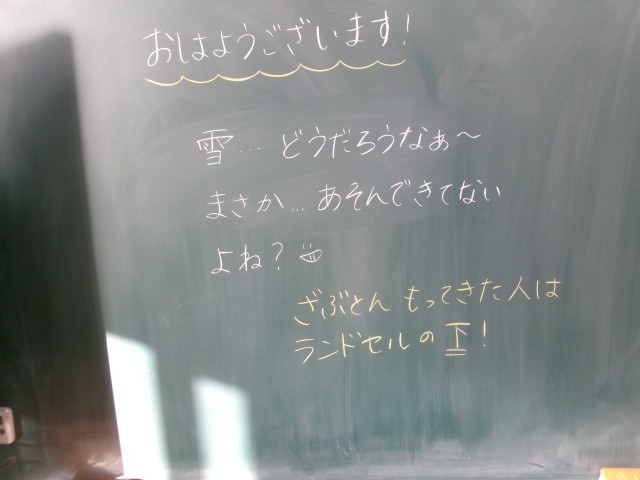 おはようございます!
雪… どうだろうなぁ〜
まさか… あそんできてない
よね?
ざぶとん もってきた人は
ランドセルの下!